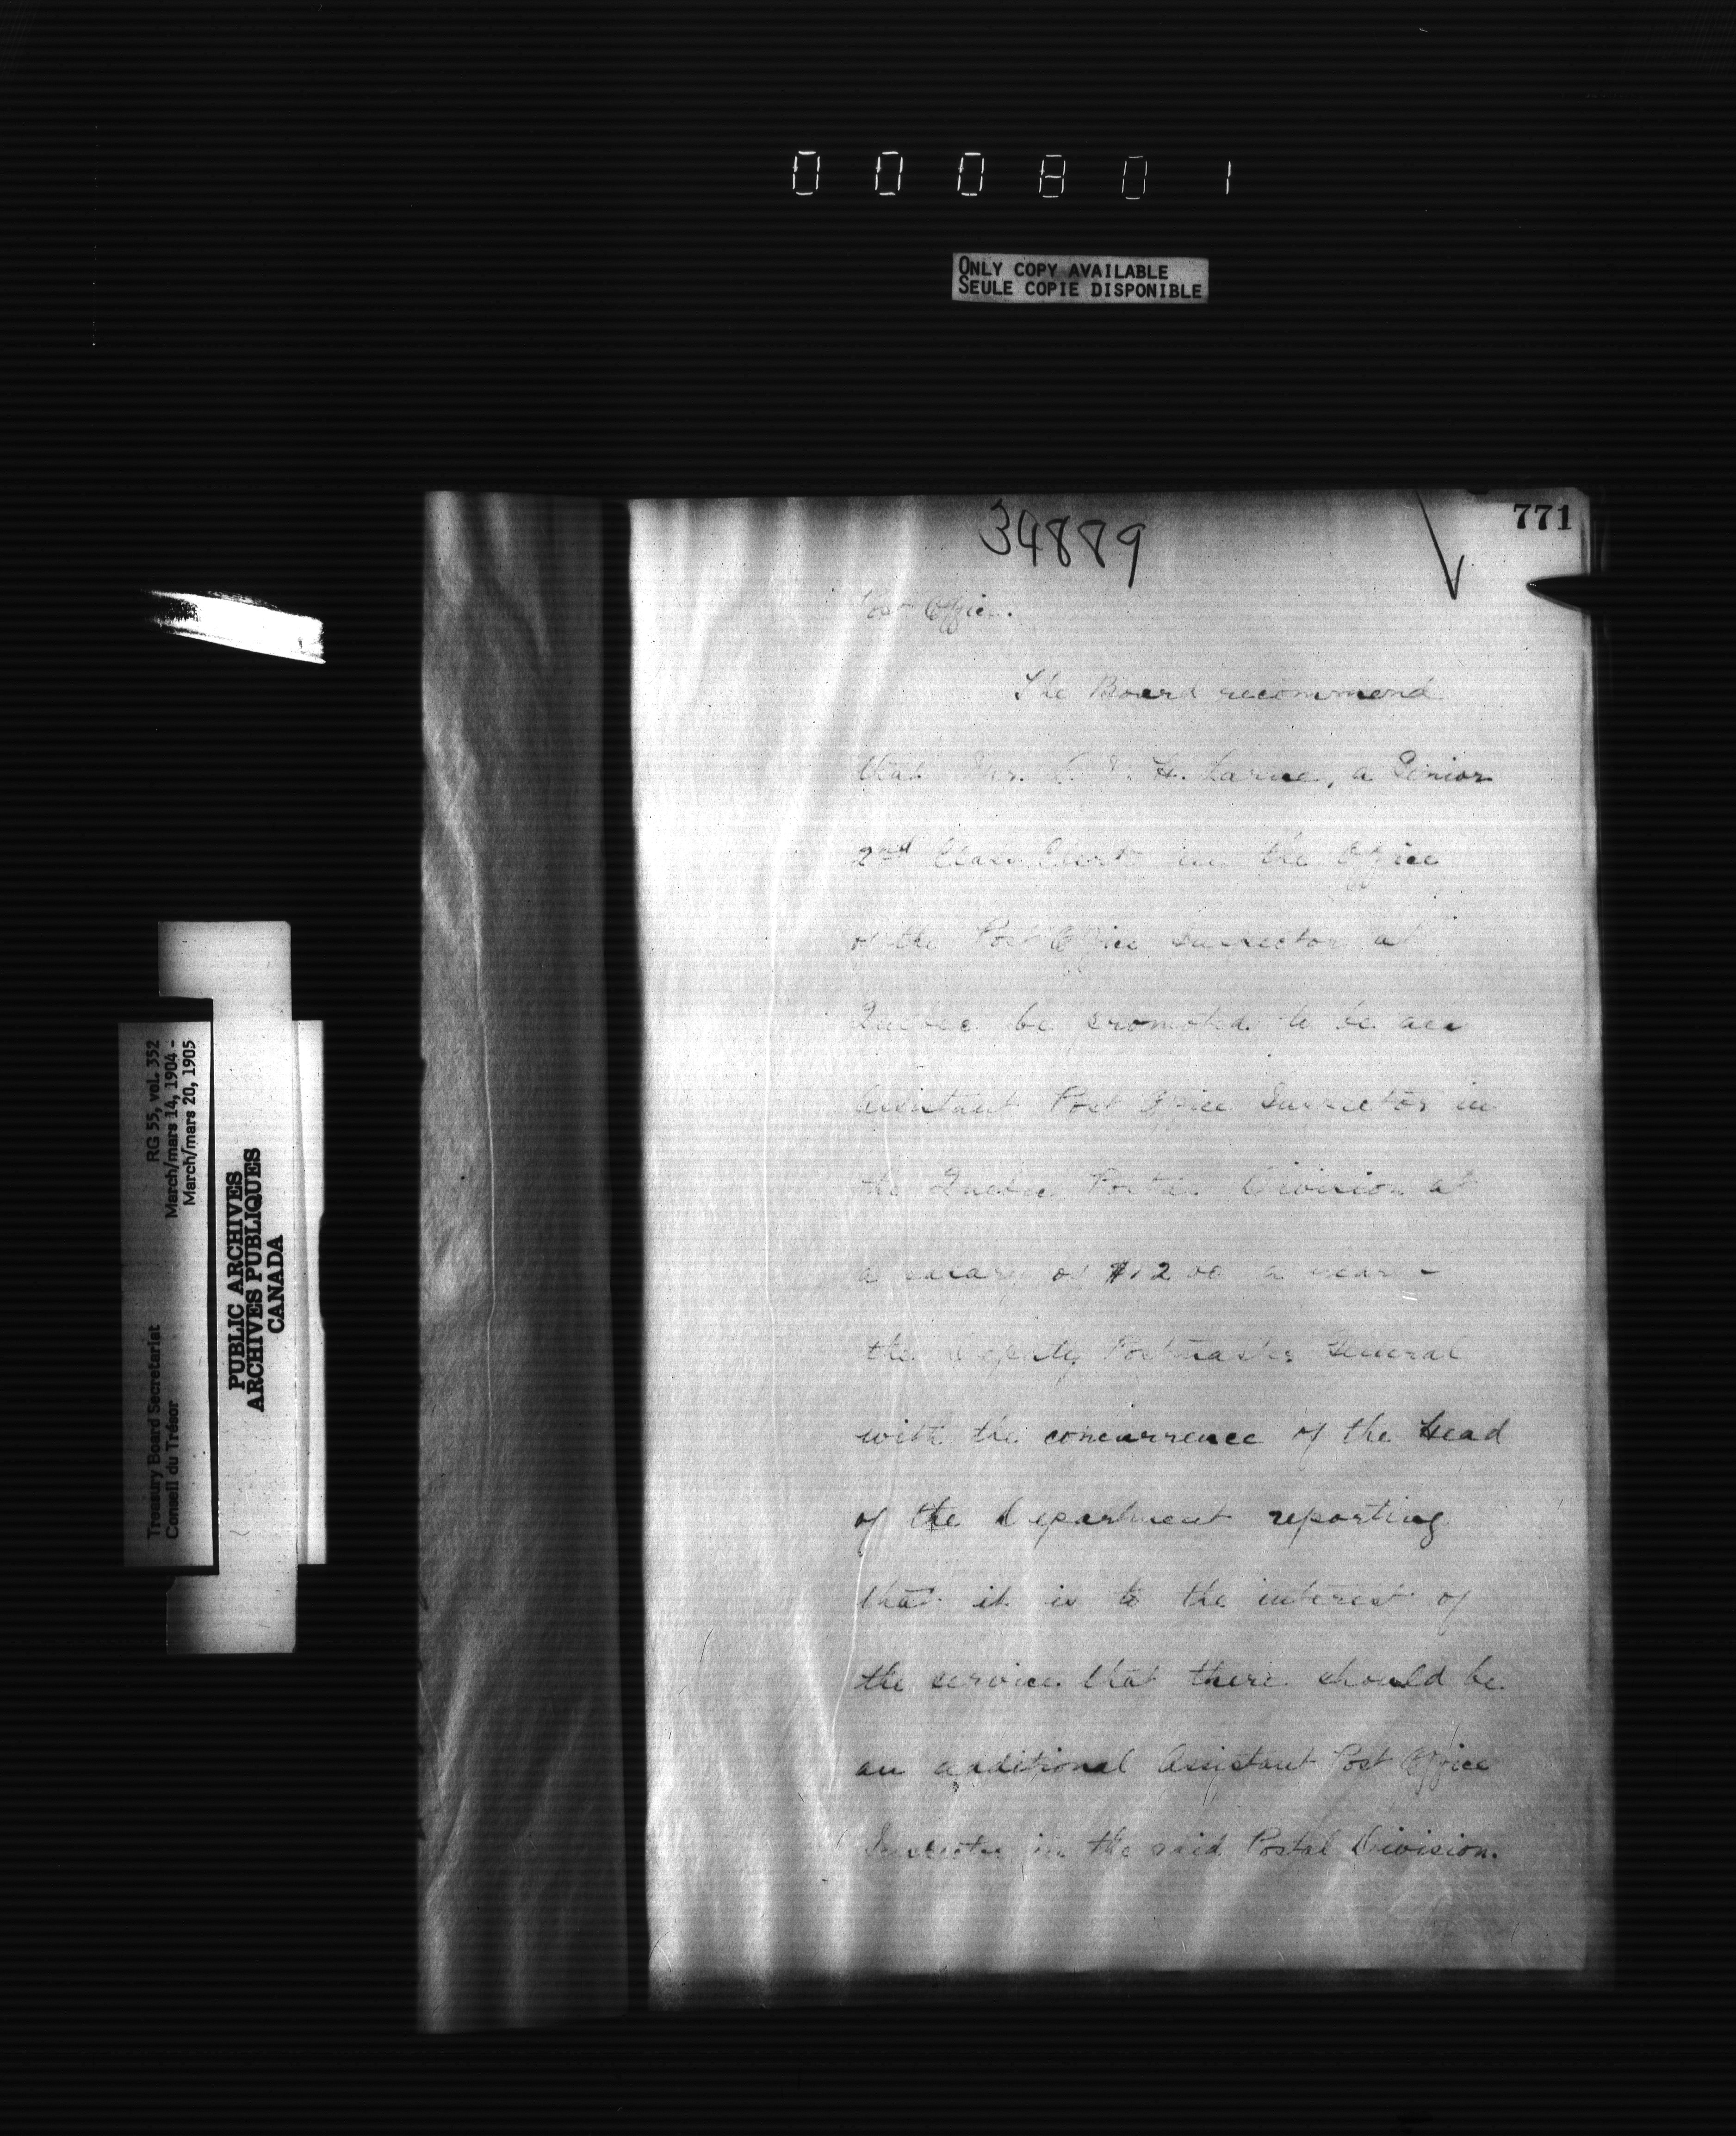 000801
ONLY COPY AVAILABLE
SEULE COPIE DISPONIBLE
771
34889
Post Office.
The Board recommend
that Mr. L. H. Larue, a Senior
2nd Class Clerk in the Office
of the Post Office Inspector at
Quebec be promoted to be an
Assistant Post Office Inspector in
the Quebec Postal Division at
a salary of $1200 a year -
the Deputy Postmaster General
with the concurrence of the Head
of the Department reporting
that it is to the interest of
the service that there should be
an additional Assistant Post Office
Inspector in the said Postal Division.
Treasury Board Secretariat RG 55, vol. 352
Conseil du Trésor March/mars 14, 1904 -
March/mars 20, 1905
PUBLIC ARCHIVES
ARCHIVES PUBLIQUES
CANADA